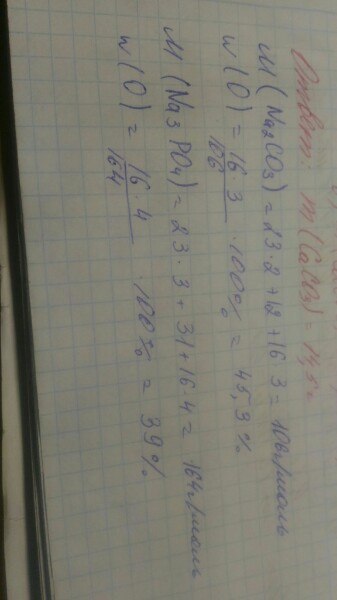 Ответ: m(CaCO3) = 14,5г
M(Na2CO3) = 23·2+12+16·3 = 106г/моль
w(O) = 16·3/106 · 100% = 45,3%
M(Na3PO4) = 23·3+31+16·4 = 164г/моль
w(O) = 16·4/164 · 100% = 39%